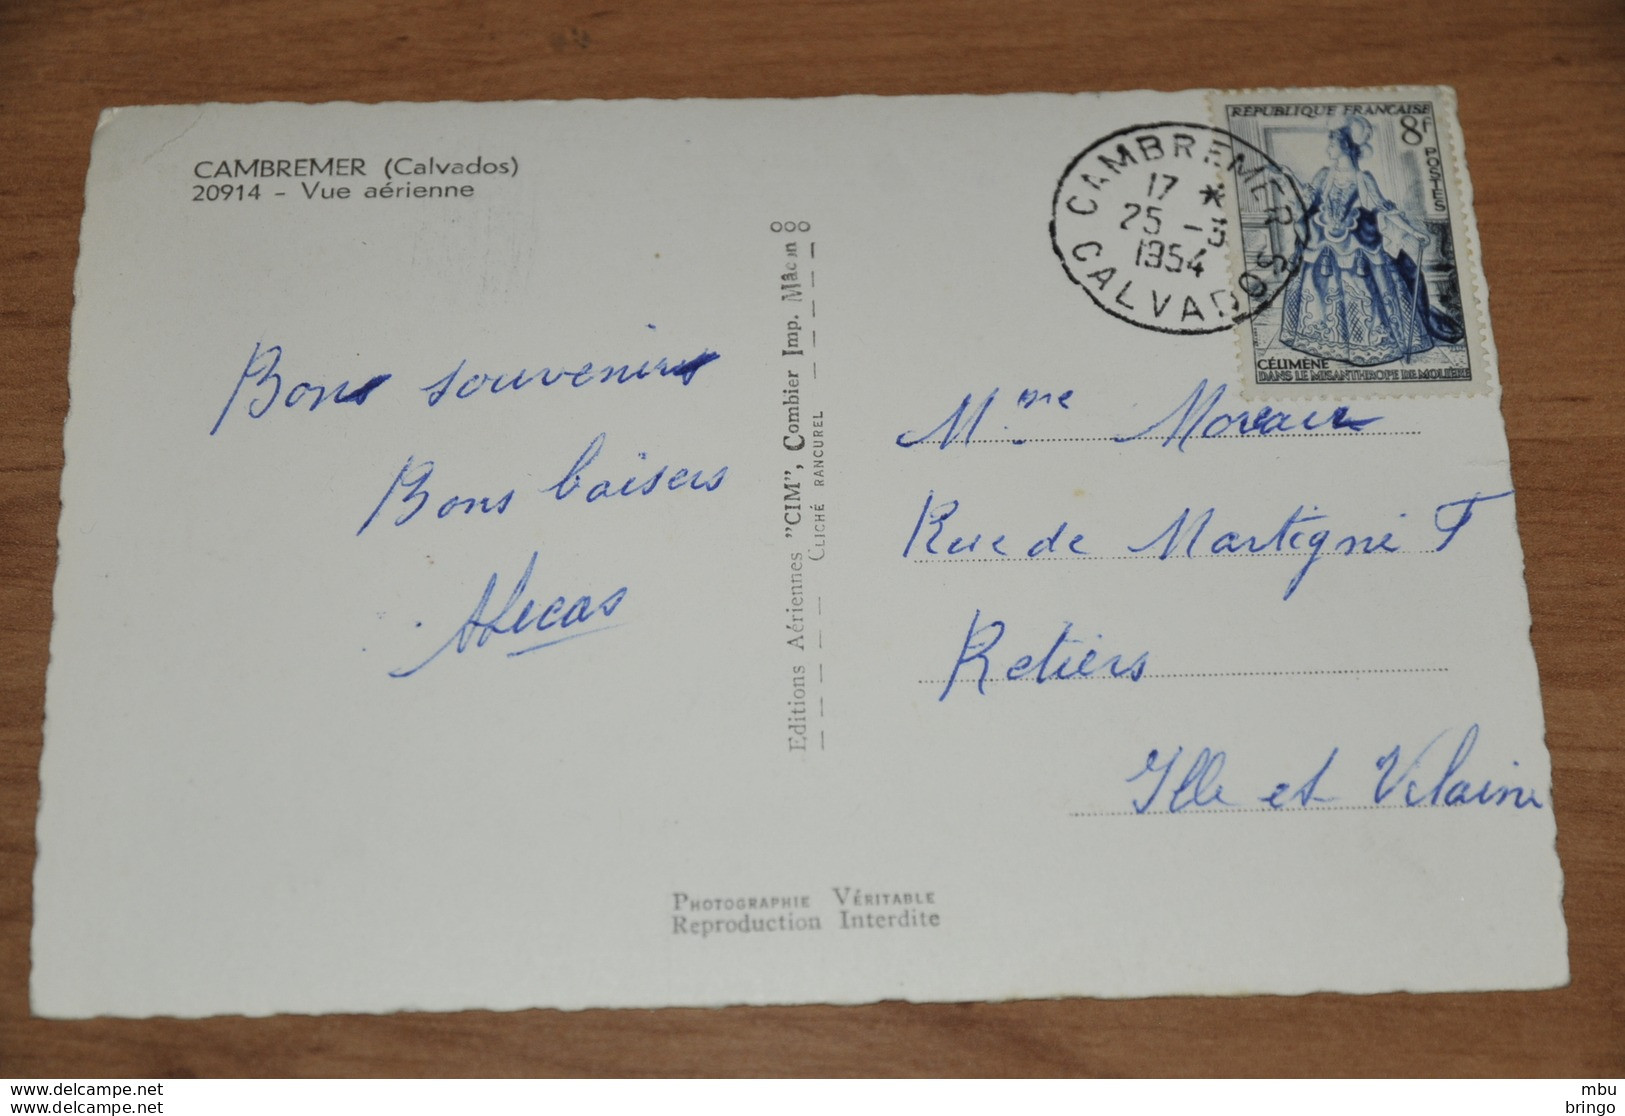 CAMBREMER (Calvados)
20914 - Vue aérienne
Bons souvenirs
Bons baisers
ALucas
Editions Aériennes "CIM", Combier Imp. Mâcon
CLICHÉ RANCUREL
PHOTOGRAPHIE VÉRITABLE
Reproduction Interdite
CAMBREMER
17 *
25 - 3
1954
CALVADOS
RÉPUBLIQUE FRANÇAISE
8F
POSTES
CÉLIMÈNE
DANS LE MISANTHROPE DE MOLIÈRE
Mme
Rue de Martigné F
Retiers
Ille et Vilaine
www.delcampe.net
www.delcampe.net
mbu
bringo